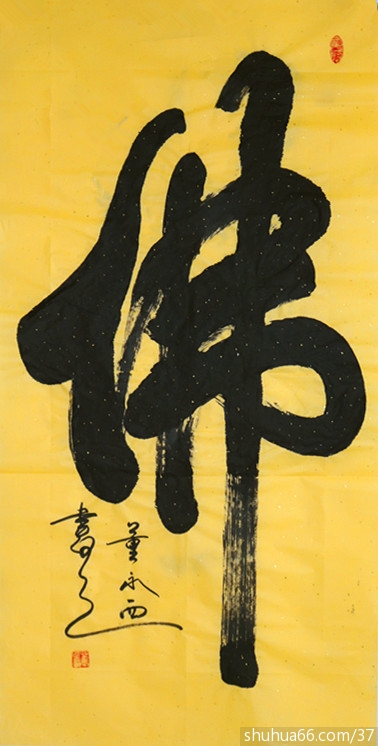 佛
董永西
書之
shuhua66.com/37